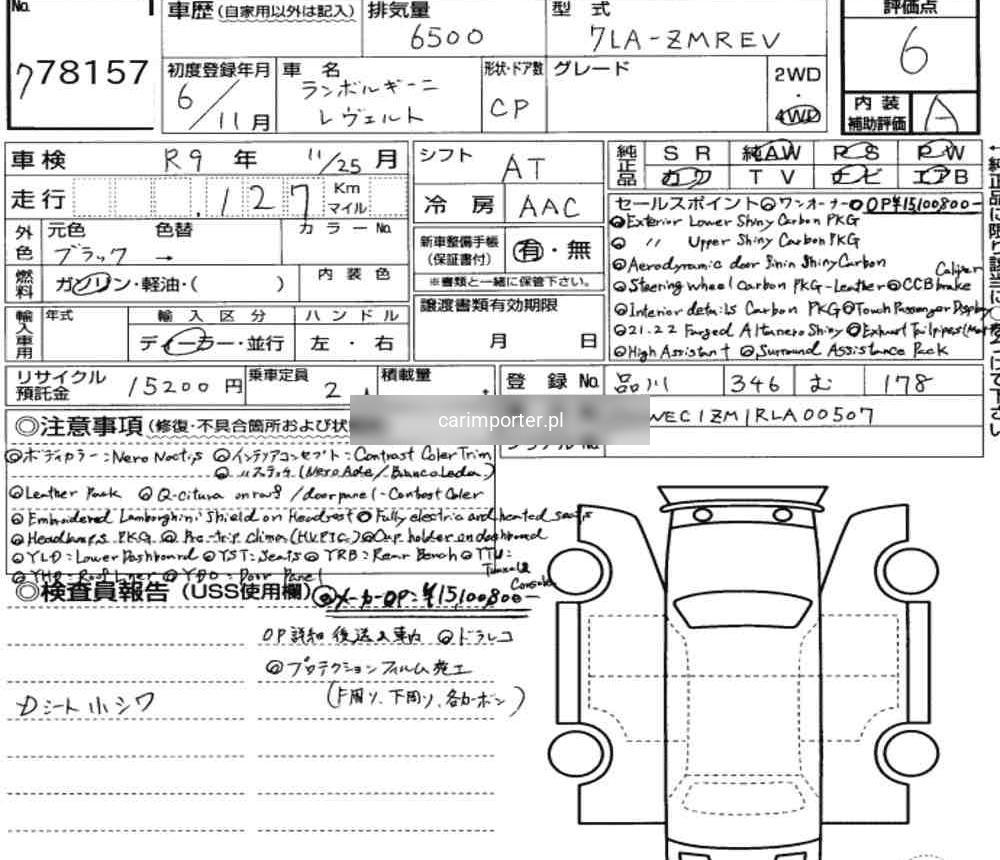 No.
778157
車歴 (自家用以外は記入)
排気量
6500
型 式
7LA-ZMREV
評価点
6
初度登録年月
6/11月
車 名
ランボルギーニ
レヴェルト
形状・ドア数
CP
グレード
2WD
・
4WD
内装
補助評価
A
車検 R9年 11/25月
走行 .127 Km マイル
外色 元色 色替 カラーNo.
ブラック →
燃料 ガソリン・軽油・( ) 内装色
輸入車用 年式 輸入区分 ハンドル
ディーラー・並行 左・右
シフト AT
冷房 AAC
新車整備手帳
(保証書付)
有・無
※書類と一緒に保管下さい。
譲渡書類有効期限
月 日
純正品 SR 純AW PS PW
カワ TV ナビ エアB
セールスポイント ◎ワンオーナー ◎OP¥15100800-
◎Exterior Lower Shiny Carbon PKG
◎ 〃 Upper Shiny Carbon PKG
◎Aerodynamic door Shiny Carbon
◎Steering wheel Carbon PKG-Leather ◎CCB brake Caliper
◎Interior details Carbon PKG ◎Touch Passenger Display
◎21.22 Forged Altanero Shiny ◎Exhaust Tailpipes
◎High Assistant ◎Surround Assistance Pack
リサイクル
預託金
15200円
乗車定員
2人
積載量
登録No. 品川 346 む 178
1ZM1RLA00507
carimporter.pl
◎注意事項 (修復・不具合箇所および状
◎ボディカラー:Nero Noctis ◎インテリアコンセプト:Contrast Color Trim
◎ 〃ステッチ (Nero Ade / Bianco Leda)
◎Leather Pack ◎Q-citura on roof / door panel - Contrast Color
◎Embroidered Lamborghini Shield on Headrest ◎Fully electric and heated seats
◎Headlamps PKG ◎Pre-trip Clima (HV PTC) ◎Cup holder on dashboard
◎YLD: Lower Dashboard ◎YST: Seats ◎YRB: Rear Bench ◎TTU:
Tunnel Console
◎YHD: Roof Liner ◎YDO: Door Panel
◎検査員報告 (USS使用欄) ◎メーカーOP:¥15,100,800-
OP詳細後送入車内 ◎ドラレコ
◎プロテクションフィルム施工
(F周リ、下周リ、各カーボン)
Dシート小シワ